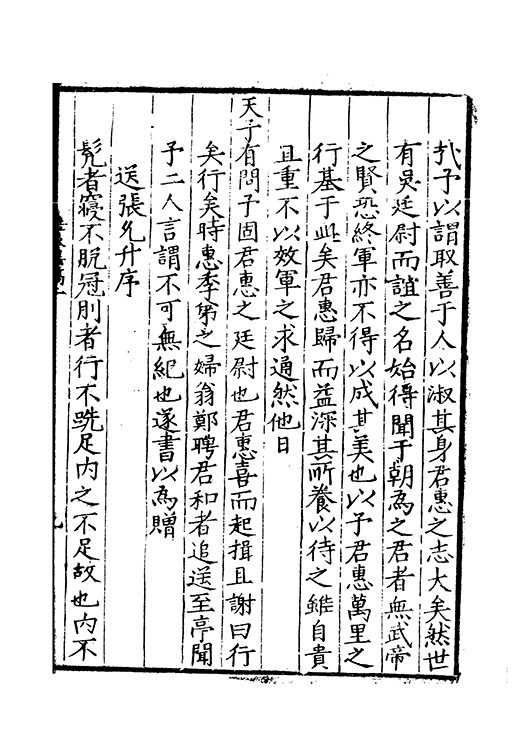 扵予以謂取善于人以淑其身君惠之志大矣然世
有吳廷尉而誼之名始得聞于朝為之君者無武帝
之賢恐終軍亦不得以成其美也以予君惠萬里之
行基于此矣君惠歸而益深其所養以待之雖自貴
且重不以效軍之求通然他日
天子有問子固君惠之廷尉也君惠喜而起揖且謝曰行
矣行矣時惠季苐之婦翁鄭聘君和者追送至亭聞
予二人言謂不可無紀也遂書以為贈
送張允升序
髠者寢不脫冠刖者行不跣足内之不足故也内不